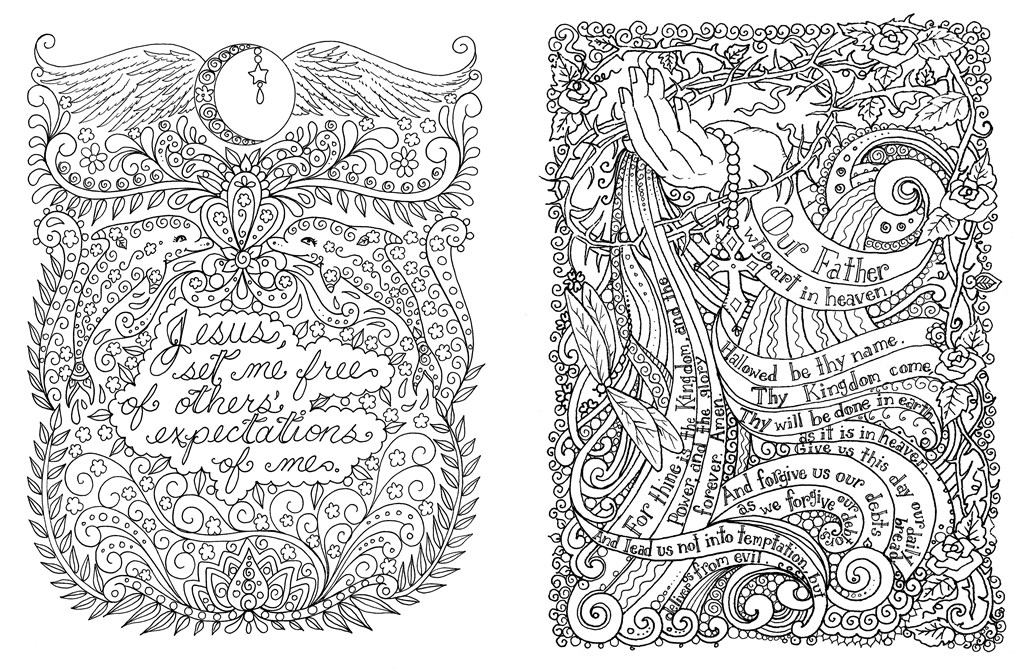 Jesus,
set me free
of others'
expectations
of me.
Our Father
who art in heaven,
Hallowed be thy name.
Thy Kingdom come,
Thy will be done in earth,
as it is in heaven.
Give us this day our daily bread
And forgive us our debts
as we forgive our debtors
And lead us not into temptation, but
deliver us from evil
For thine is the Kingdom, and the
Power, and the glory
forever. Amen.